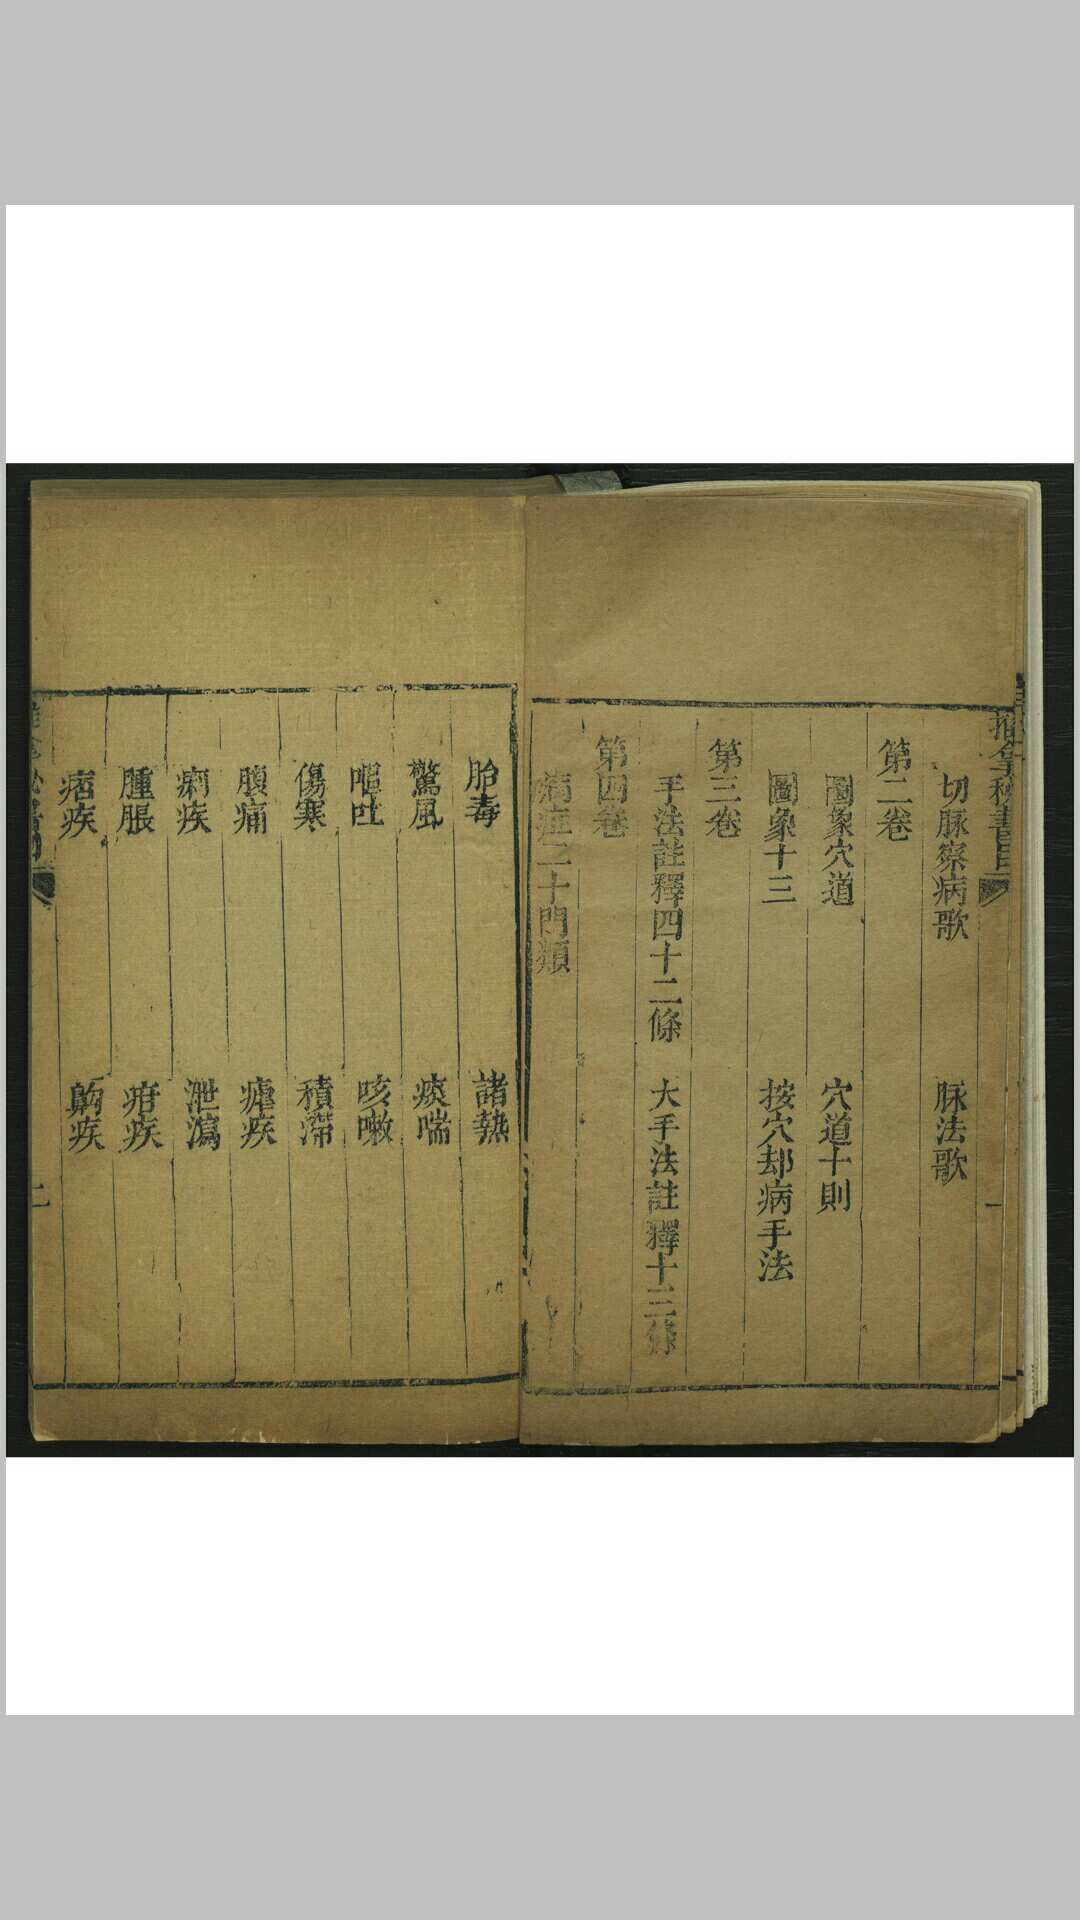 推拿秘書目
切脉察病歌　脉法歌
第二卷
圖象穴道　穴道十則
圖象十三　按穴却病手法
第三卷
手法註釋四十二條　大手法註釋十三條
第四卷
病症二十門類
胎毒　諸熱
驚風　痰喘
嘔吐　咳嗽
傷寒　積滯
腹痛　瘧疾
痢疾　泄瀉
腫脹　疳疾
痞疾　齁疾